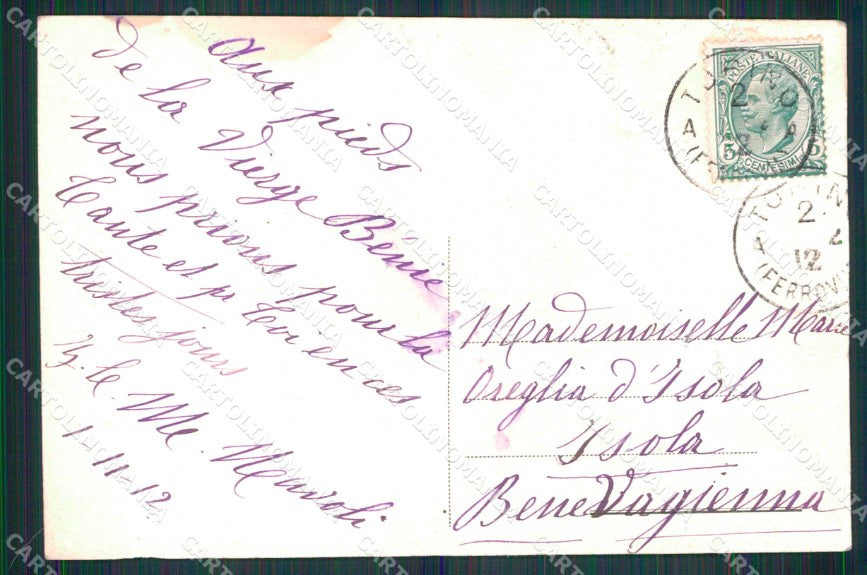 Aux pieds
de la Vierge Bénie
nous prions pour la
tante et pr toi en ces
tristes jours
M.
1 11 12
POSTE ITALIANE
5 CENTESIMI 5
TORINO
2
A (FE
TORIN
2 2
12
A (FERROVI
Mademoiselle Marie
Oreglia d'Isola
Isola
Bene Vagienna
CARTOLINOMANIA